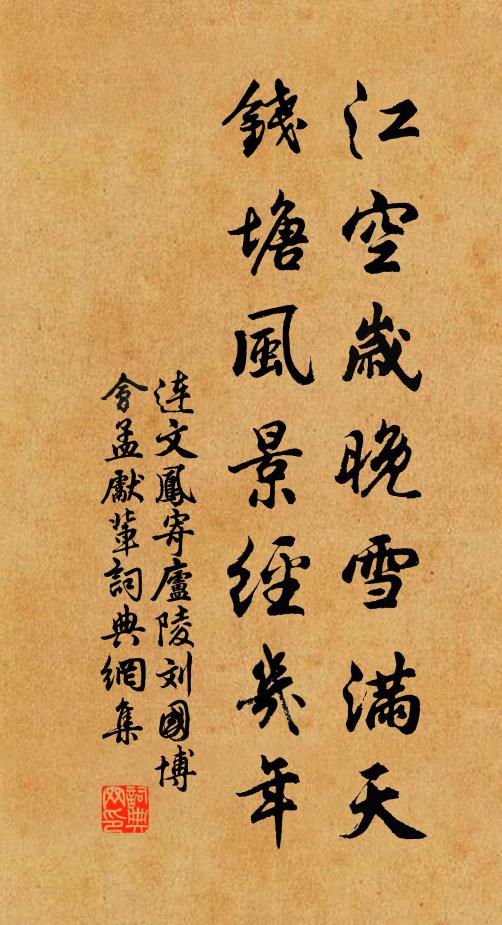 江空歲晚雪滿天
錢塘風景經幾年
连文鳳寄廬陵刘國博
會孟獻輩詞典網集
詞典網印